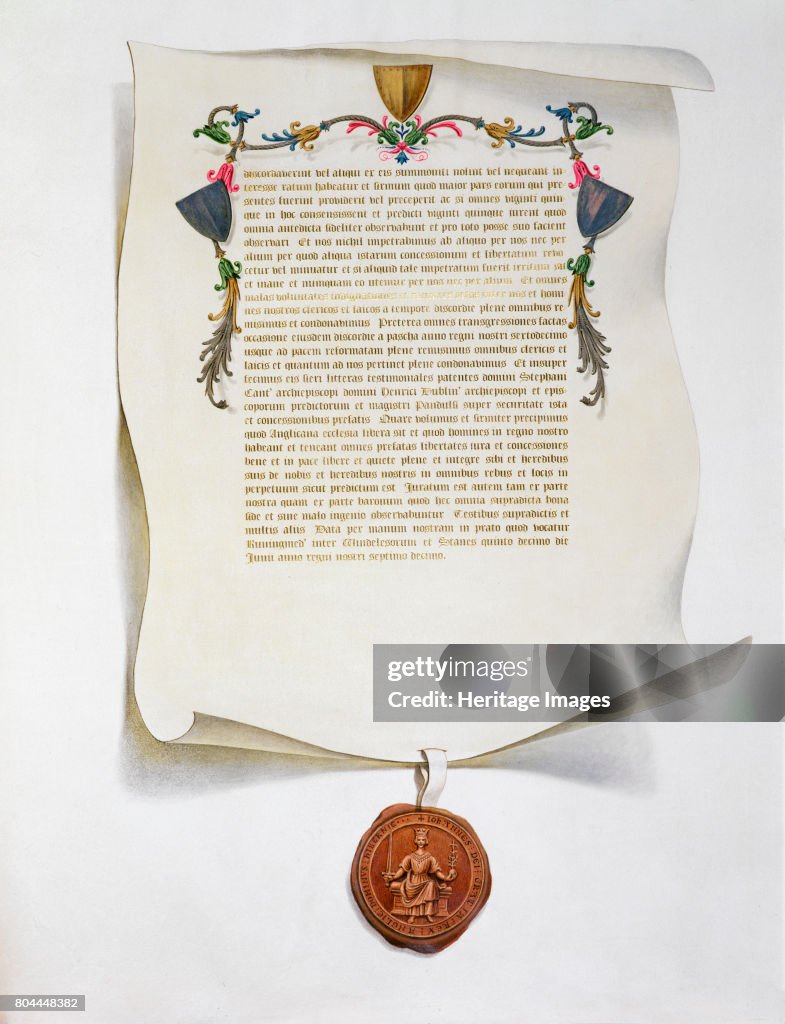 discordaverint vel aliqui ex eis summoniti nolint vel nequeant in-
teresse ratum habeatur et firmum quod maior pars eorum qui pre-
sentes fuerint providerit vel preceperit ac si omnes viginti quin-
que in hoc consensissent et predicti viginti quinque iurent quod
omnia antedicta fideliter observabunt et pro toto posse suo facient
observari Et nos nichil impetrabimus ab aliquo per nos nec per
alium per quod aliqua istarum concessionum et libertatum revo-
cetur vel minuatur et si aliquid tale impetratum fuerit irritum sit
et inane et numquam eo utemur per nos nec per alium Et omnes
malas voluntates indignationes et rancores ortos inter nos et homi-
nes nostros clericos et laicos a tempore discordie plene omnibus re-
misimus et condonavimus Preterea omnes transgressiones factas
occasione eiusdem discordie a pascha anno regni nostri sextodecimo
usque ad pacem reformatam plene remisimus omnibus clericis et
laicis et quantum ad nos pertinet plene condonavimus Et insuper
fecimus eis fieri litteras testimoniales patentes domini Stephani
Cant' archiepiscopi domini Henrici Dublin' archiepiscopi et epis-
coporum predictorum et magistri Pandulfi super securitate ista
et concessionibus prefatis Quare volumus et firmiter precipimus
quod Anglicana ecclesia libera sit et quod homines in regno nostro
habeant et teneant omnes prefatas libertates iura et concessiones
bene et in pace libere et quiete plene et integre sibi et heredibus
suis de nobis et heredibus nostris in omnibus rebus et locis in
perpetuum sicut predictum est Juratum est autem tam ex parte
nostra quam ex parte baronum quod hec omnia supradicta bona
fide et sine malo ingenio observabuntur Testibus supradictis et
multis aliis Data per manum nostram in prato quod vocatur
Runingmed' inter Windelesorum et Stanes quinto decimo die
Junii anno regni nostri septimo decimo.
gettyimages®
Heritage Images
+ IOHANNES DEI GRATIA REX ANGLIE DOMINUS HIBERNIE
804448382